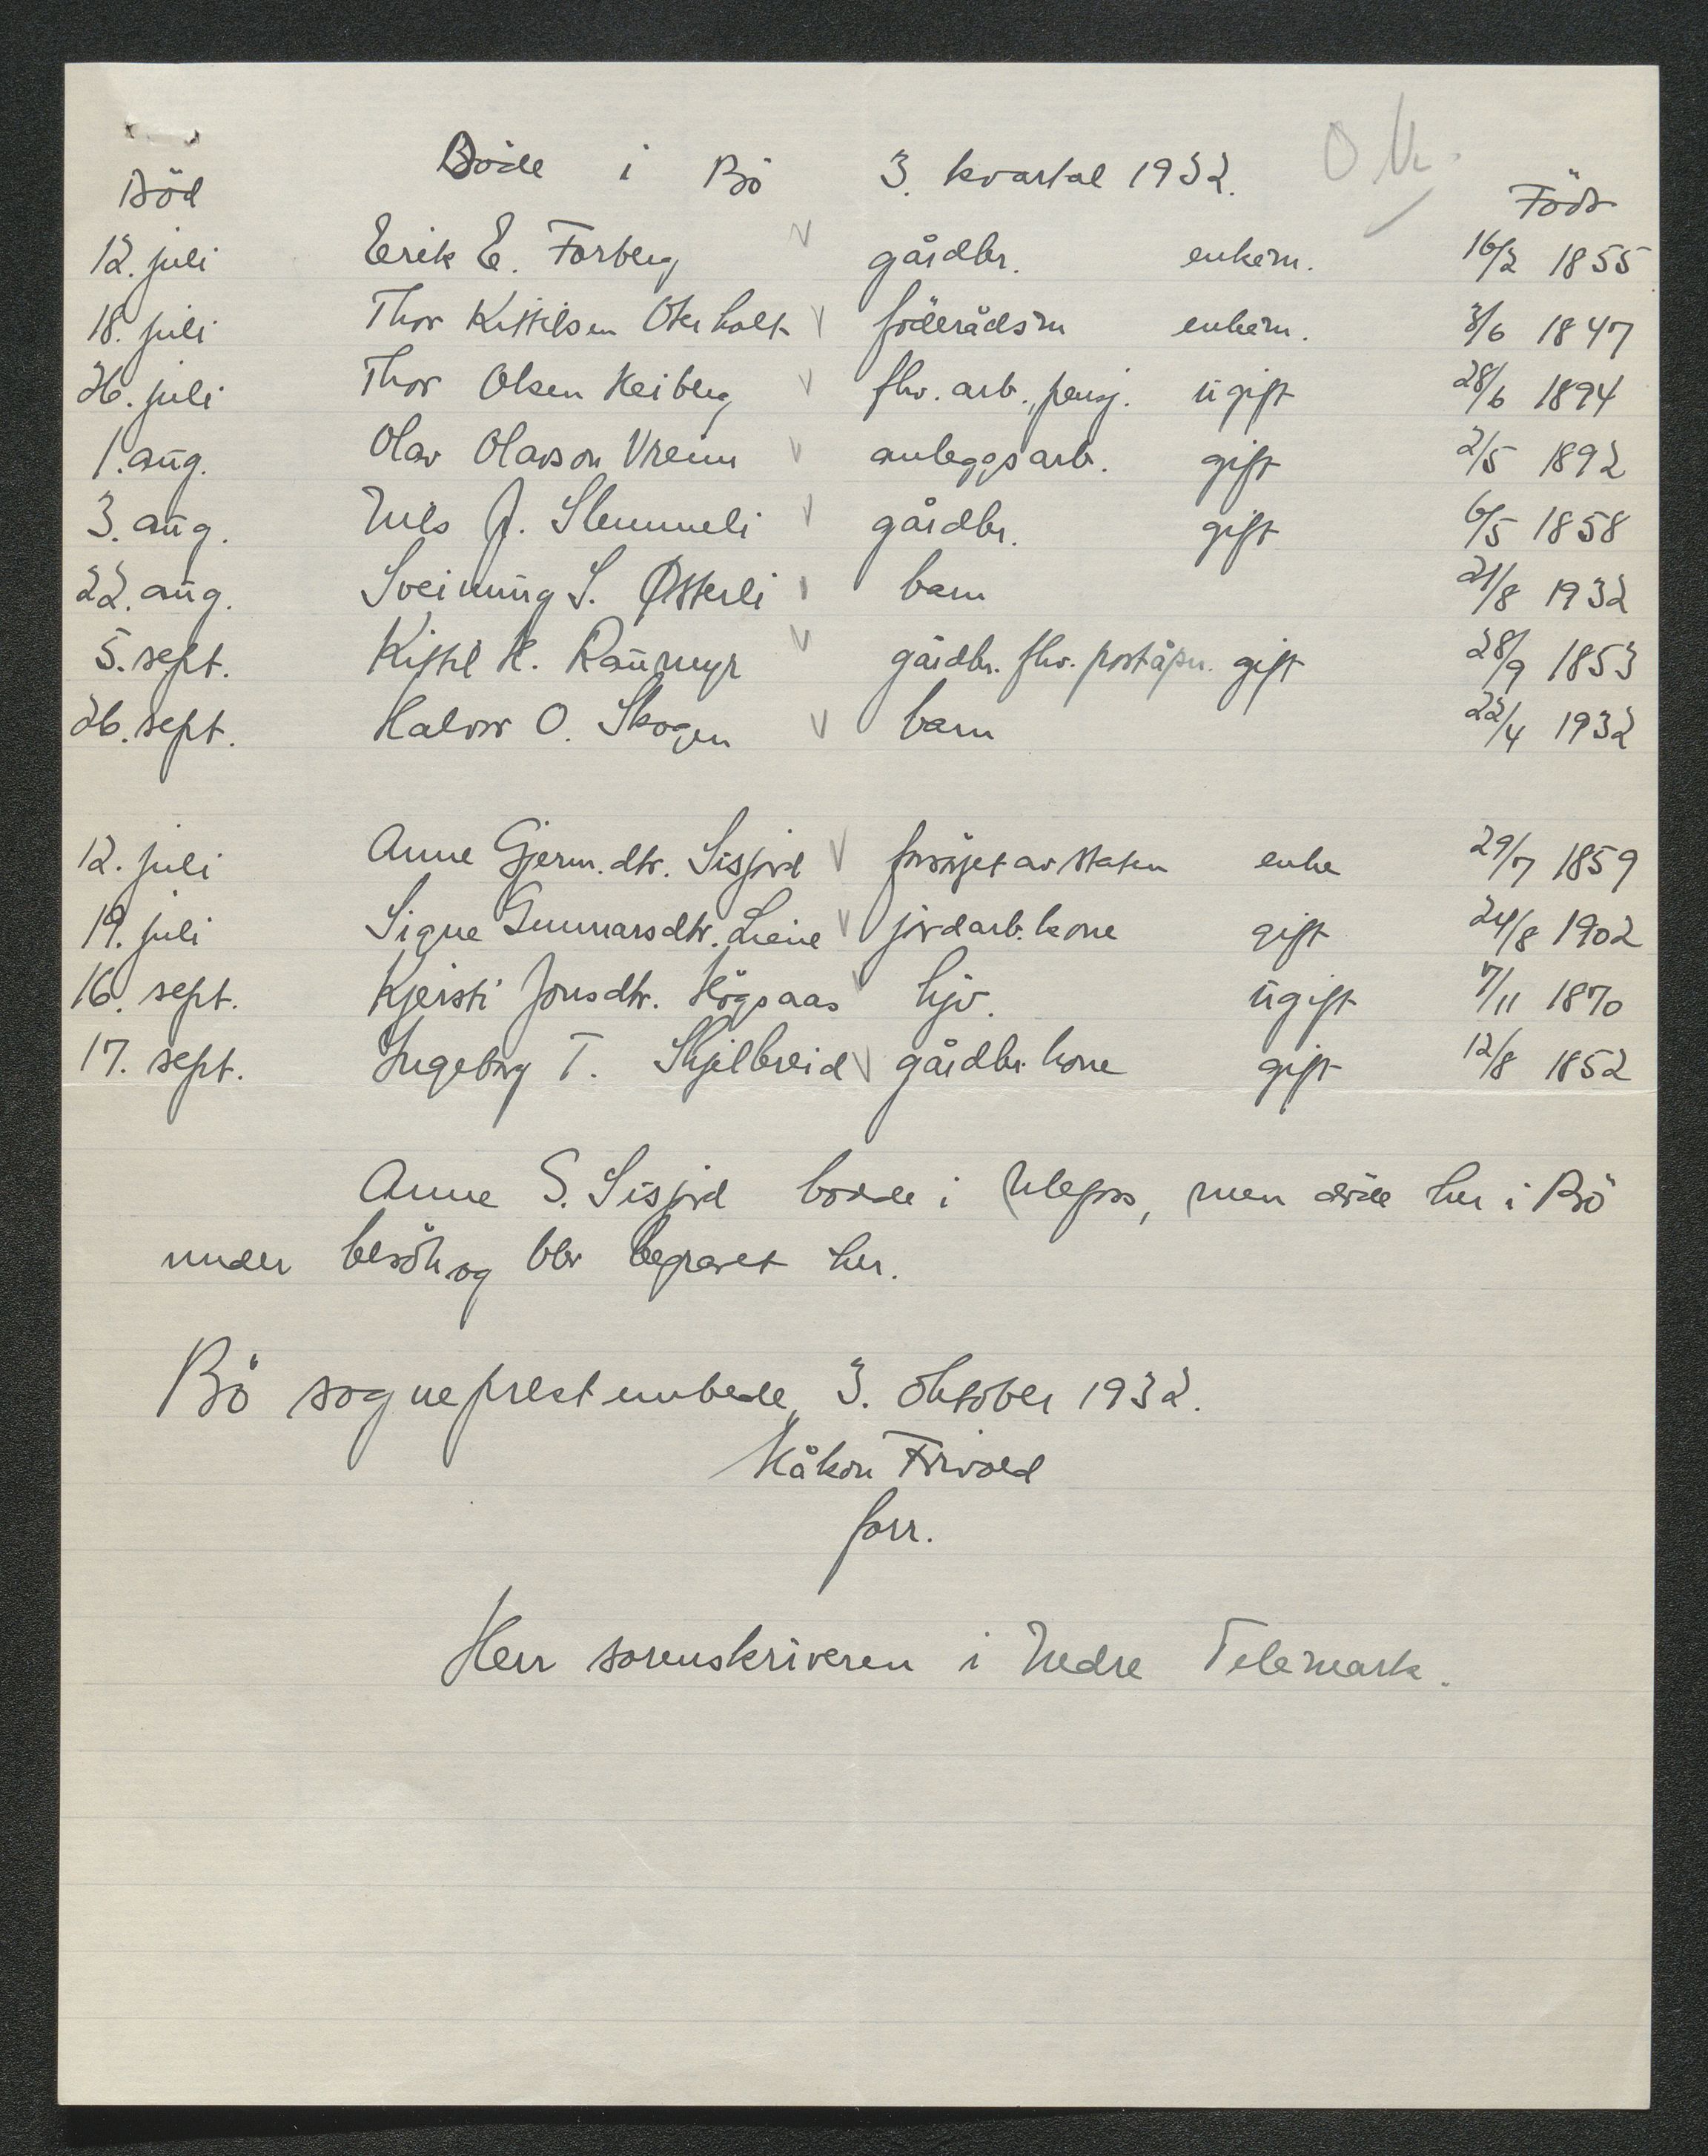 O.K.
Döde i Bö 3. kvartal 1932.
Död Födt
12. juli Erik E. Forberg v gårdbr. enkem. 16/2 1855
18. juli Thor Kittilsen Oterholt v föderådsm enkem. 3/6 1847
26. juli Thor Olsen Heiberg v fhv. arb., pensj. ugift 28/6 1894
1. aug. Olav Olavson Vreim v anleggsarb. gift 2/5 1892
3. aug. Nils J. Slemmeli v gårdbr. gift 6/5 1858
22. aug. Sveinung S. Østerli v barn 21/8 1932
5. sept. Kittil K. Raumyr v gårdbr. fhv. poståpn. gift 28/9 1853
26. sept. Halvor O. Skogen v barn 22/4 1932
12. juli Anne Gjerm.dtr. Sisjord v forsörjet av staten enke 29/7 1859
19. juli Signe Gunnarsdtr. Leine v jordarb. kone gift 24/8 1902
16. sept. Kjersti Jonsdtr. Högsaas v hjv. ugift 7/11 1870
17. sept. Ingeborg T. Skjelbreid v gårdbr. kone gift 12/8 1852
Anne S. Sisjord bodde i Ulefoss, men döde her i Bö
under besök og blev begravet her.
Bö sogneprestembede, 3. oktober 1932.
Håkon Frivold
forr.
Herr sorenskriveren i Nedre Telemark.